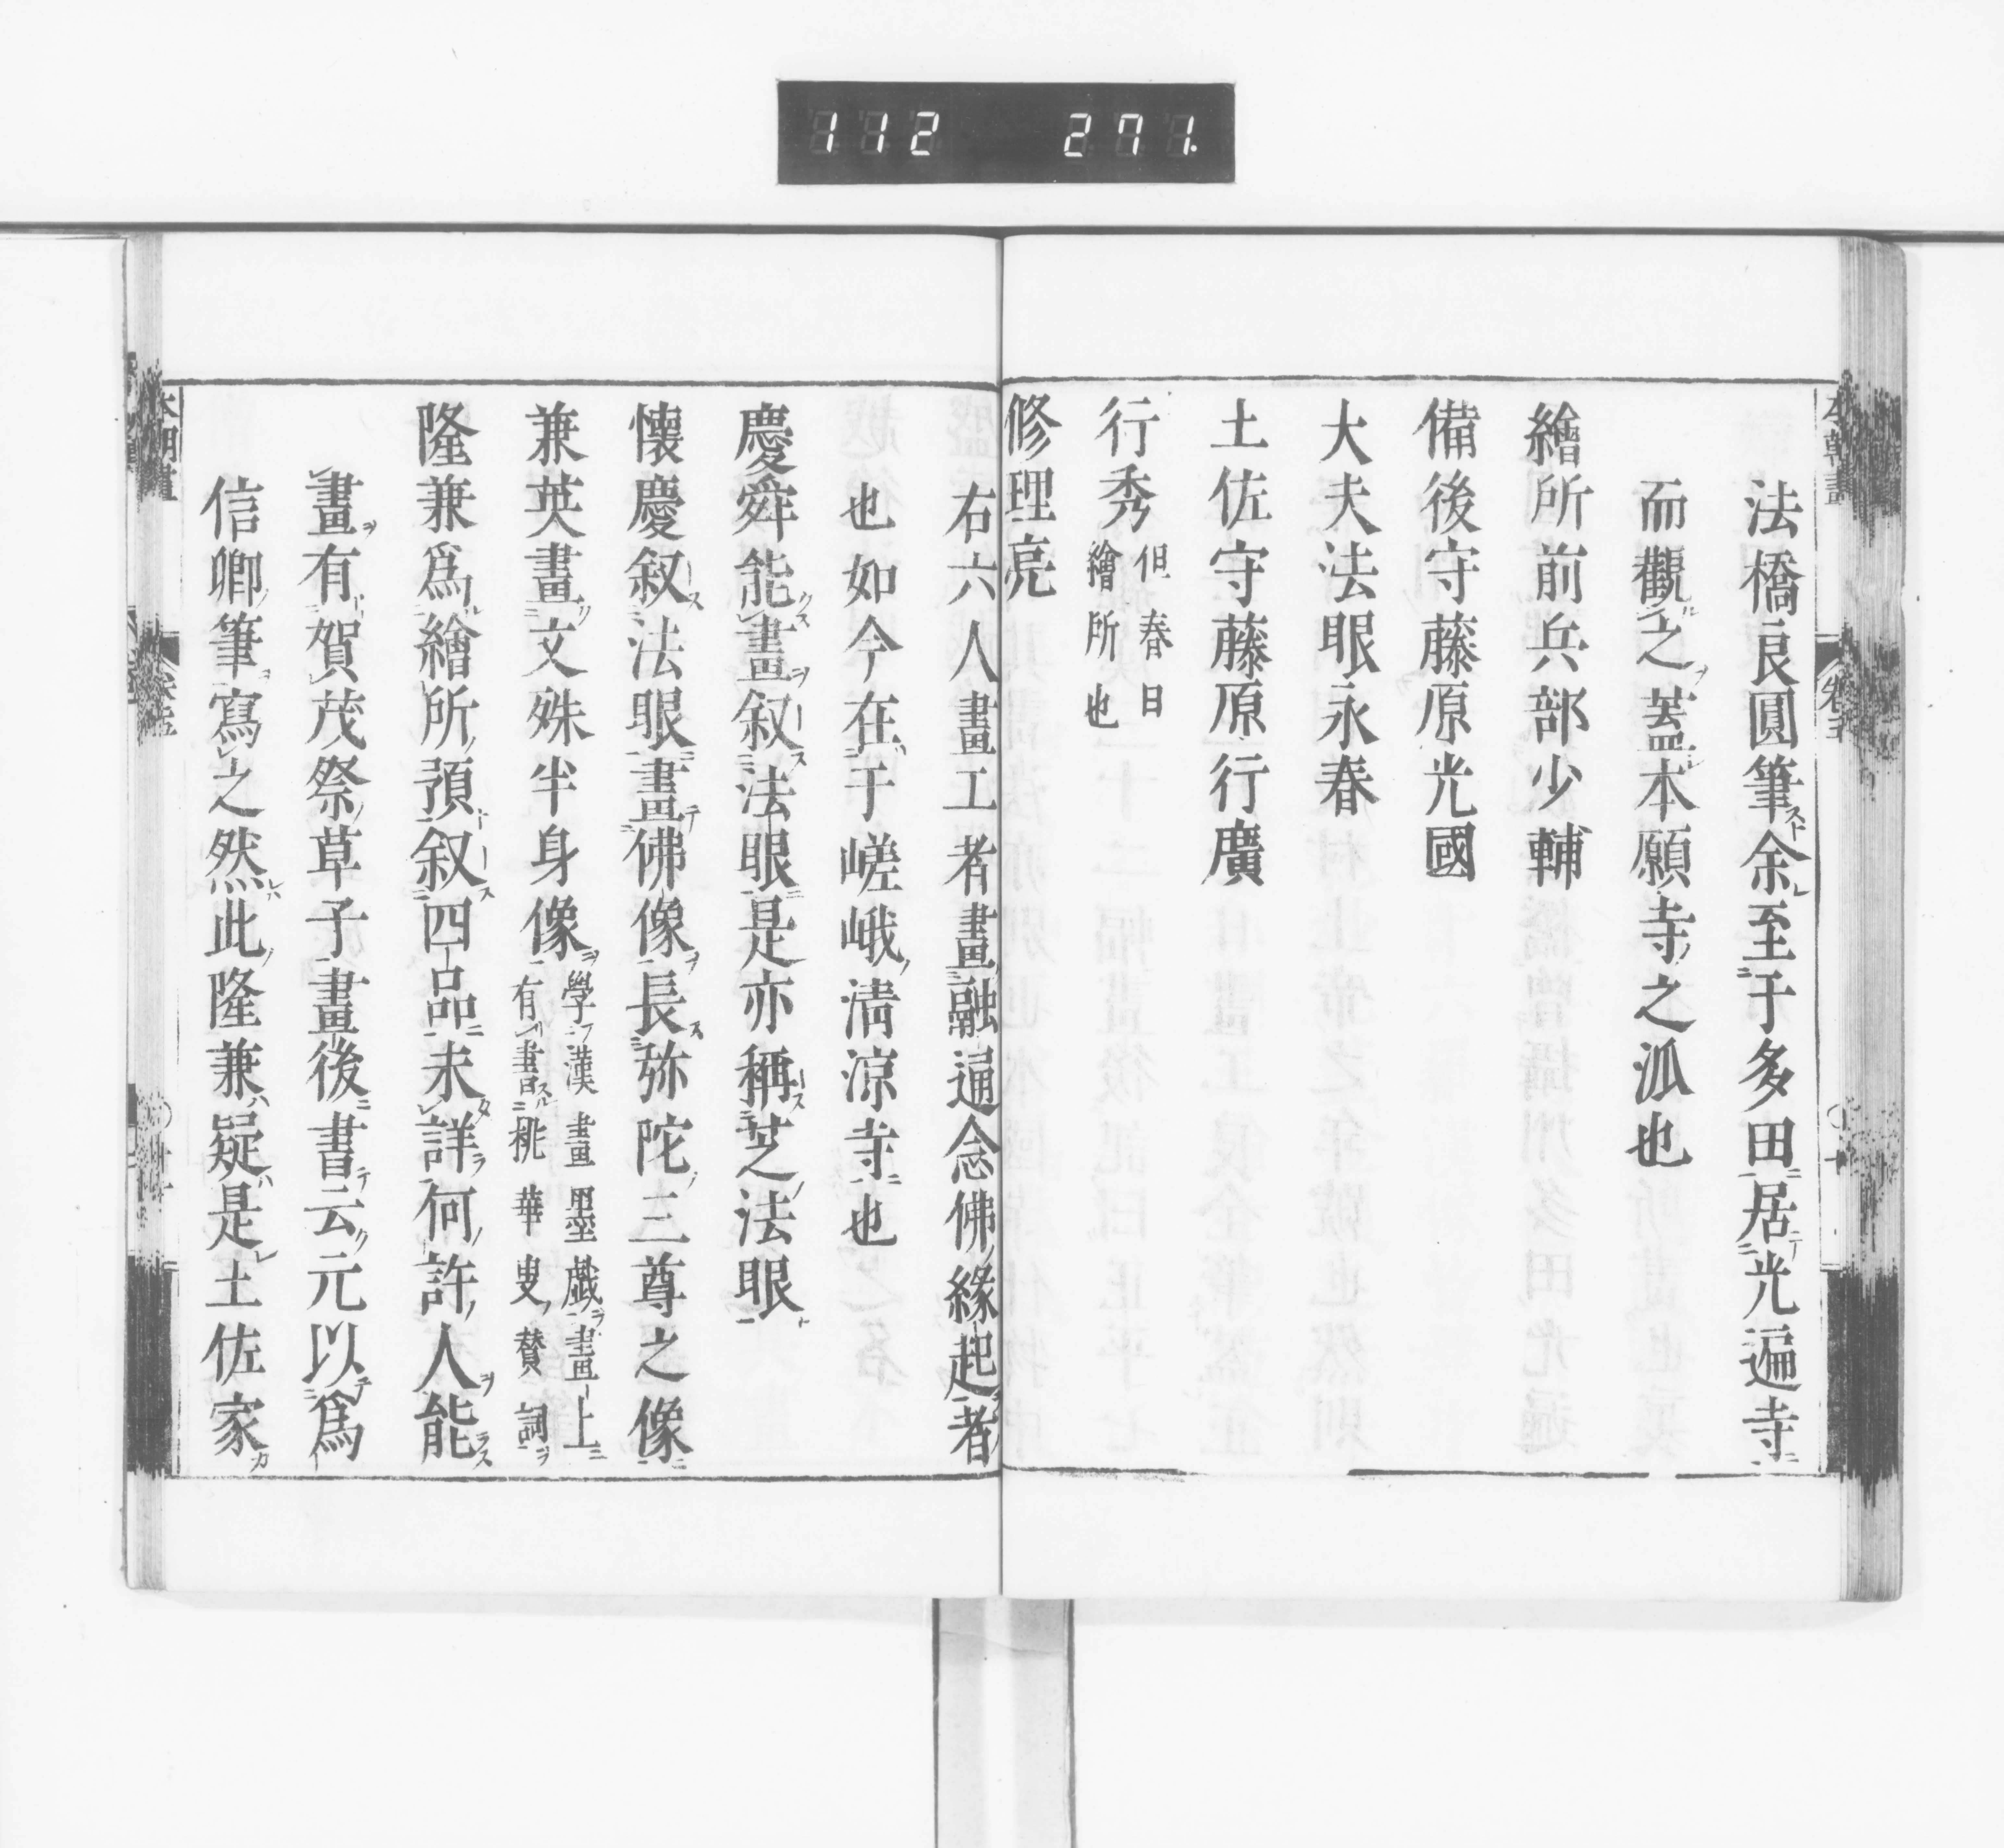 112 271.
法橋良圓筆余至于多田居光遍寺
而觀之蓋本願寺之派也
繪所前兵部少輔
備後守藤原光國
大夫法眼永春
土佐守藤原行廣
行秀 但春日
繪所也
修理亮
右六人畫工者畫融通念佛緣起者
也如今在于嵯峨清涼寺也
慶舜能畫叙法眼是亦稱芝法眼
懐慶叙法眼畫佛像長弥陀三尊之像
兼英畫文殊半身像 學漢畫墨戯畫上
有書桃華叟賛詞
隆兼爲繪所預叙四品未詳何許人能
畫有賀茂祭草子畫後書云元以爲
信卿筆寫之然此隆兼疑是土佐家